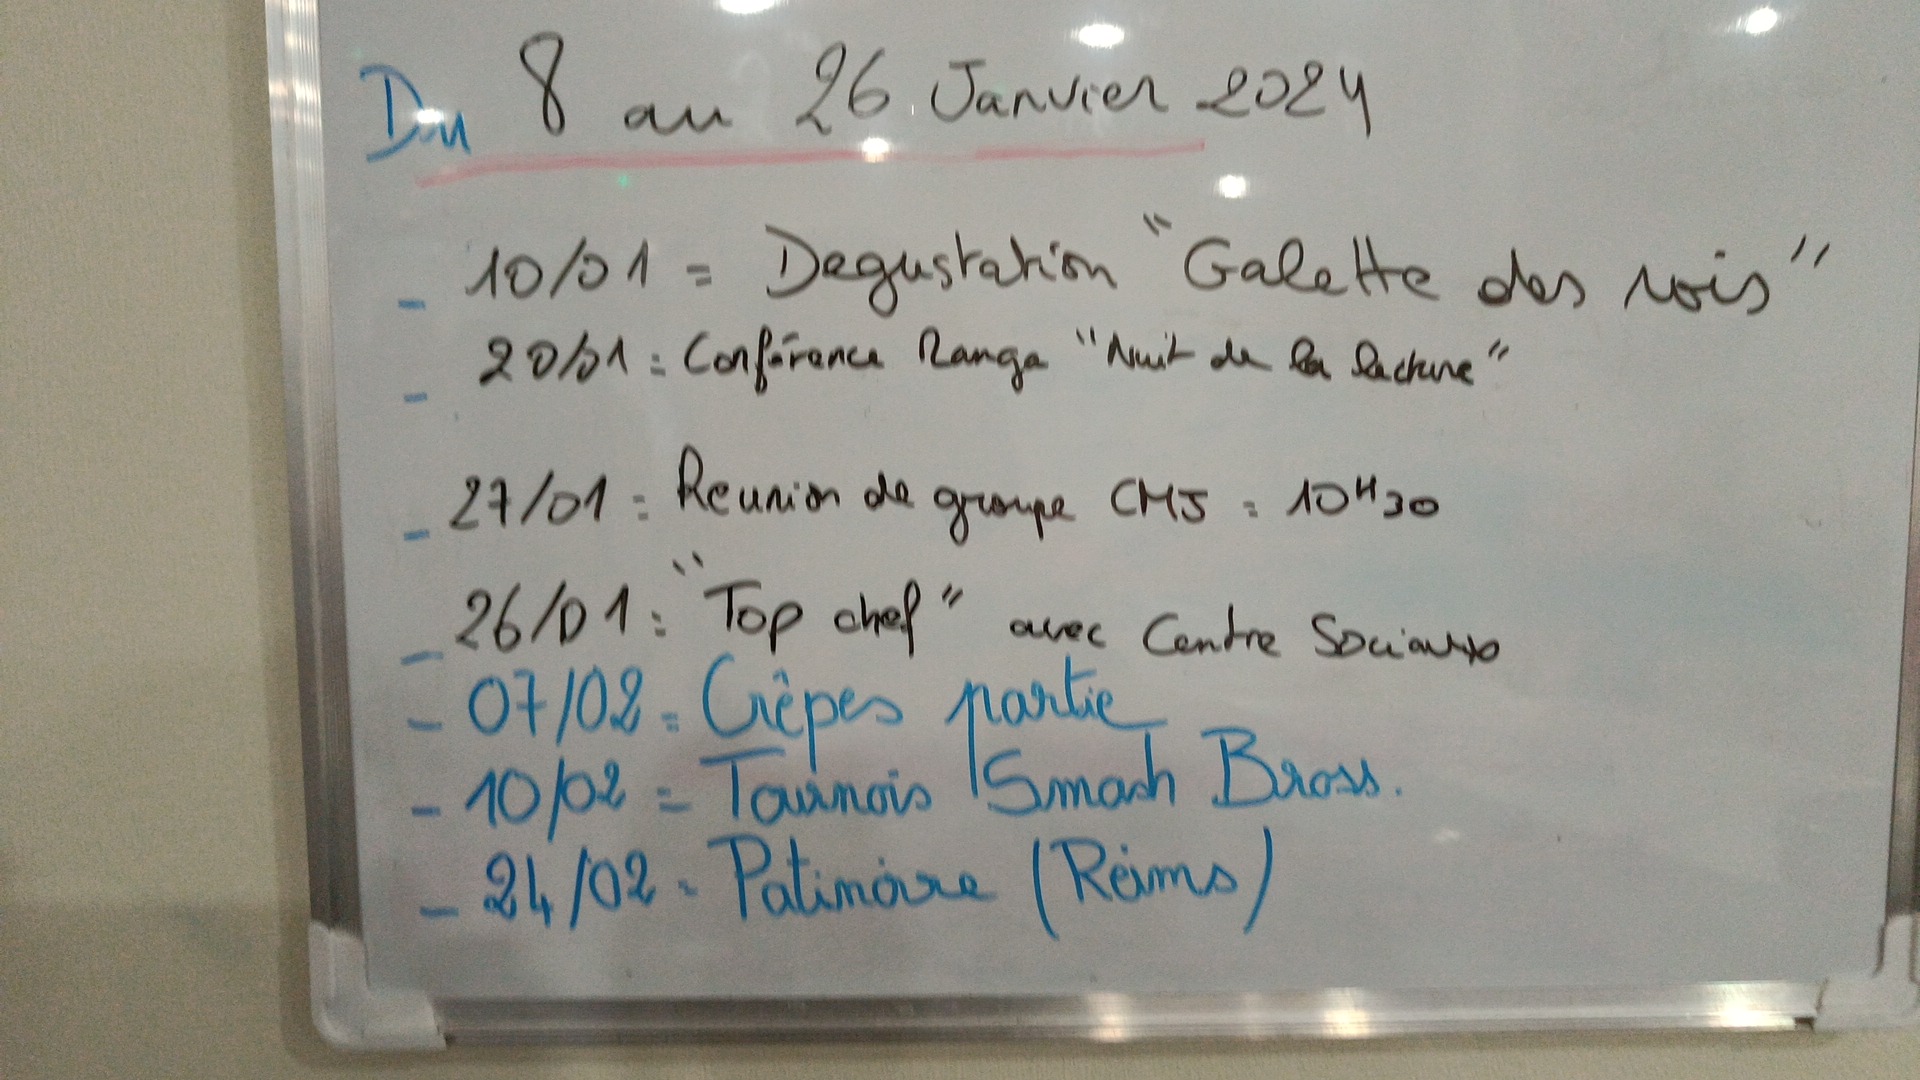 Du 8 au 26 Janvier 2024
- 10/01 = Degustation "Galette des rois"
- 20/01 : Conférence Manga "Nuit de la lecture"
- 27/01 : Reunion de groupe CMJ : 10H30
- 26/01 : "Top chef" avec Centre Sociaux
- 07/02 = Crêpes partie
- 10/02 = Tournois Smash Bross.
- 24/02 = Patinoire (Reims)